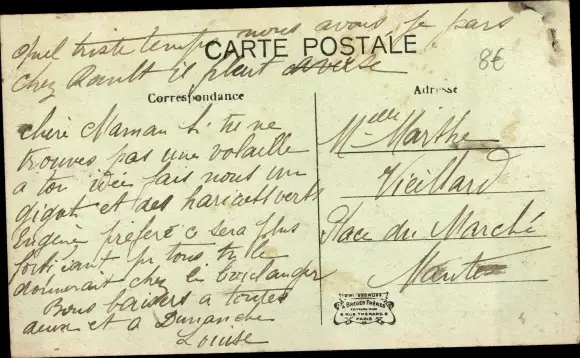 quel triste temps nous avons je pars
chez Rault il pleut averse
CARTE POSTALE
8€
Correspondance
Adresse
chère Maman si tu ne
trouves pas une volaille
a ton idée fais nous un
gigot et des haricots verts
Eugène préfère c sera plus
fortifiant pr tous tu le
donnerait chez le boulanger
Bons baisers a toutes
deux et a Dimanche
Louise
Melle Marthe
Vieillard
Place du Marché
BREGER FRÈRES
9 RUE THENARD. 9
PARIS